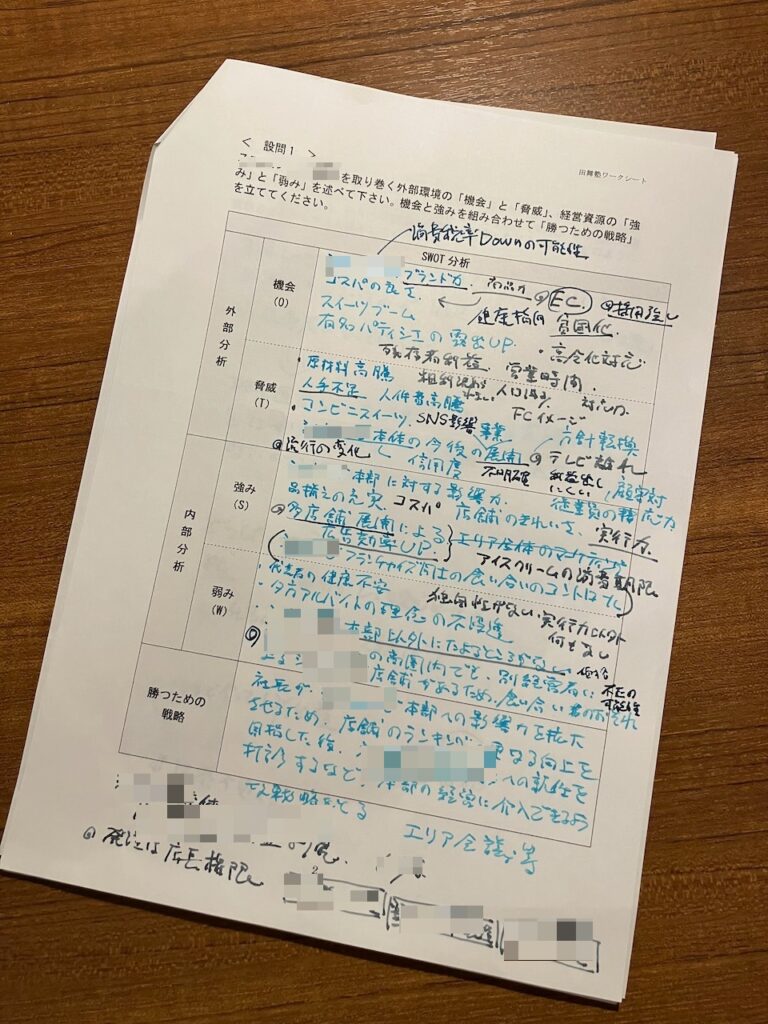 田舞塾ワークシート
< 設問1 >
を取り巻く外部環境の「機会」と「脅威」、経営資源の「強
み」と「弱み」を述べて下さい。機会と強みを組み合わせて「勝つための戦略」
を立ててください。
消費税率Downの可能性
SWOT 分析
外部分析
機会
(O)
ブランド力 商品力 EC
コスパの良さ
スイーツブーム 健康指向 貧困化
有名パティシエの露出UP. 高令化対応
残存者利益 営業時間
脅威
(T)
・原材料高騰 人口減少 対応力
人手不足 人件費高騰 FCイメージ
・コンビニスイーツ SNS影響 事業 方針転換
本体の今後の展開 テレビ離れ
流行の変化 信用度 不明確 利益出しにくい
内部分析
強み
(S)
本部に対する影響力
品揃えの充実 コスパ 店舗のきれいさ 実行力
多店舗展開による エリア全体のマーケティング
広告効率UP. アイスクリームの消費期限
フランチャイズ同社の食い合いのコントロール
弱み
(W)
代表者の健康不安
夕方アルバイトの理念の不浸透
独自性がない 実行力以外何もなし
本部以外にたよるところがない
の商圏内でも、別経営者に
よる 店舗があるため、食い合い
勝つための
戦略
社長が 本部への影響力を拡大
させるため、店舗のランキング 更なる向上を
目指した後、 への就任を
打診するなど、本部の経営に介入できるよう
な戦略をとる
エリア会議等
発注は店長権限
2